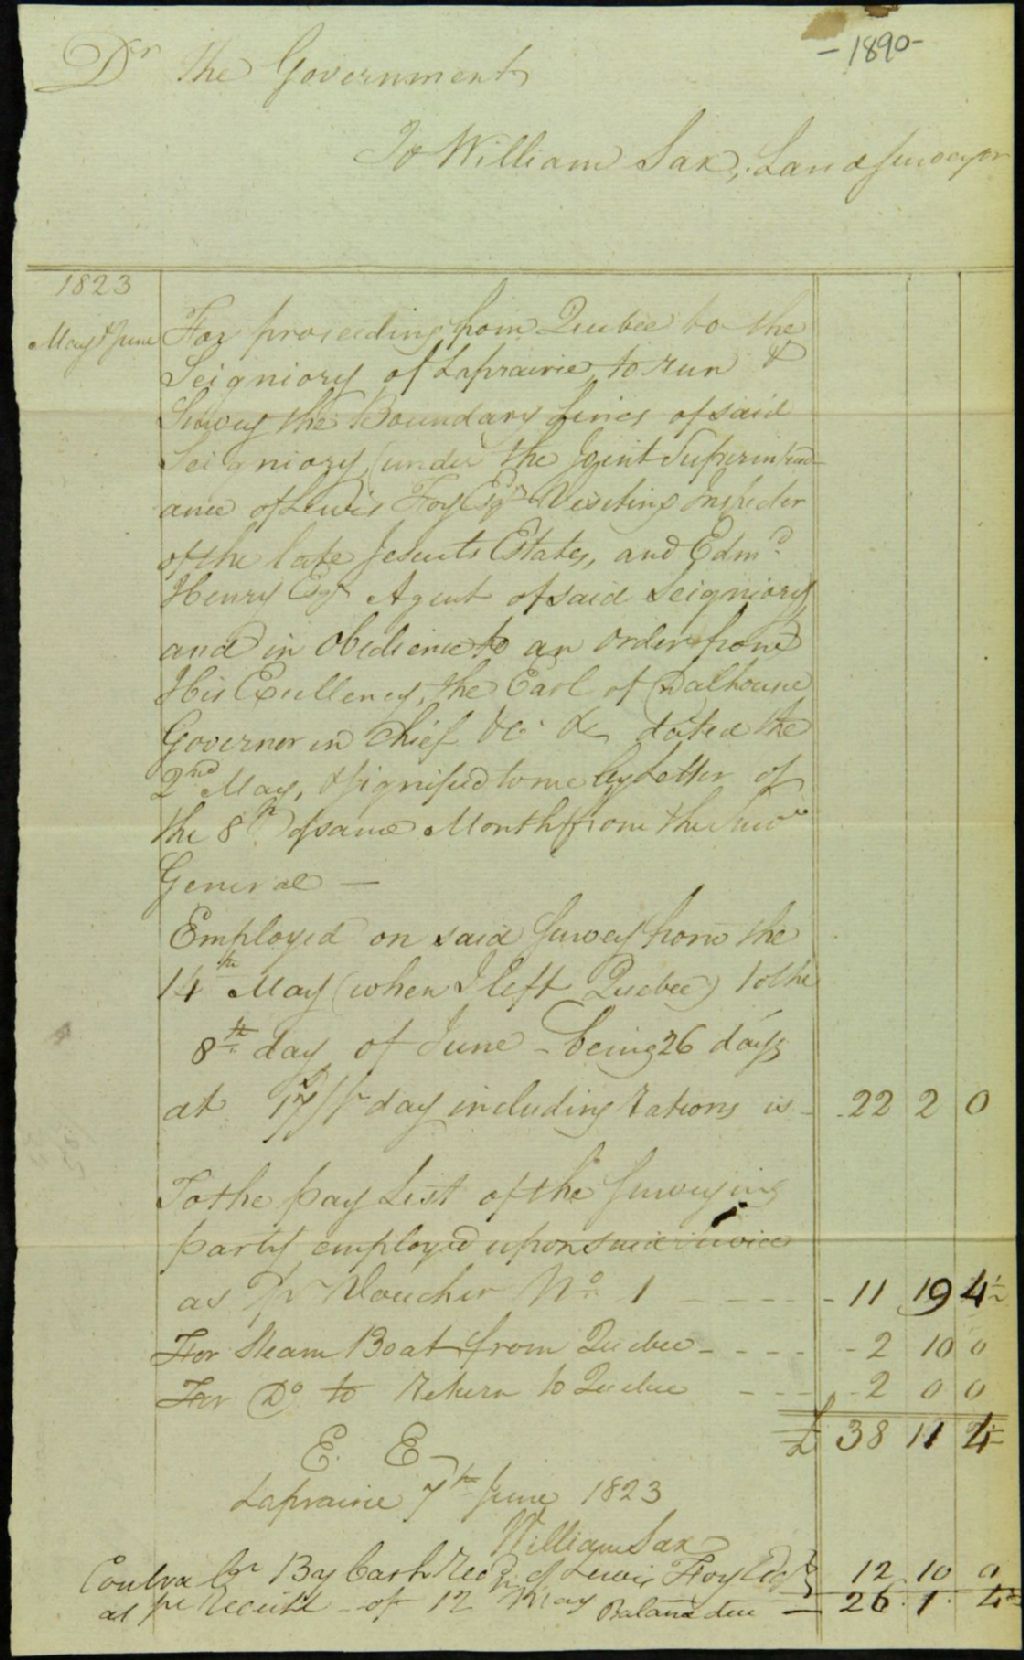 -1890-
Dr the Government
To William Sax, Land Surveyor
1823
May & June For proceeding from Quebec to the
Seigniory of Laprairie, to run &
Survey the Boundary Lines of said
Seigniory, (under the Joint Superintend-
ance of Lewis Foy Esqr Visiting Inspector
of the late Jesuits Estates, and Edmd.
Henry Esqr Agent of said Seigniory
and in Obedience to an order from
His Excellency, the Earl of Dalhousie
Governor in Chief &c &c dated the
2nd May, & signified to me by Letter of
the 8th of same Month from the Survr
General —
Employed on said Survey from the
14th May (when I left Quebec) to the
8th day of June - being 26 days
at 17/ pr day including Rations is - 22 2 0
To the pay List of the Surveying
party employed upon said service
as pr Voucher No. 1 - - - - 11 19 4½
For Steam Boat from Quebec - - - - 2 10 0
For Do to Return to Quebec - - - 2 0 0
£ 38 11 4½
E. E.
Laprairie 7th June 1823
William Sax
Contra Cr By Cash Recd of Lewis Foy Esqr 12 10 0
as pr Receipt of 12th May Balance due — 26 1 4½